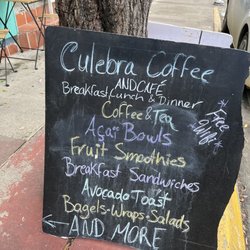 Culebra Coffee
AND CAFÉ
Breakfast, Lunch & Dinner
Coffee & Tea
Açaí Bowls
Fruit Smoothies
Breakfast Sandwiches
Avocado Toast
Bagels-Wraps-Salads
AND MORE
*Free Wifi*